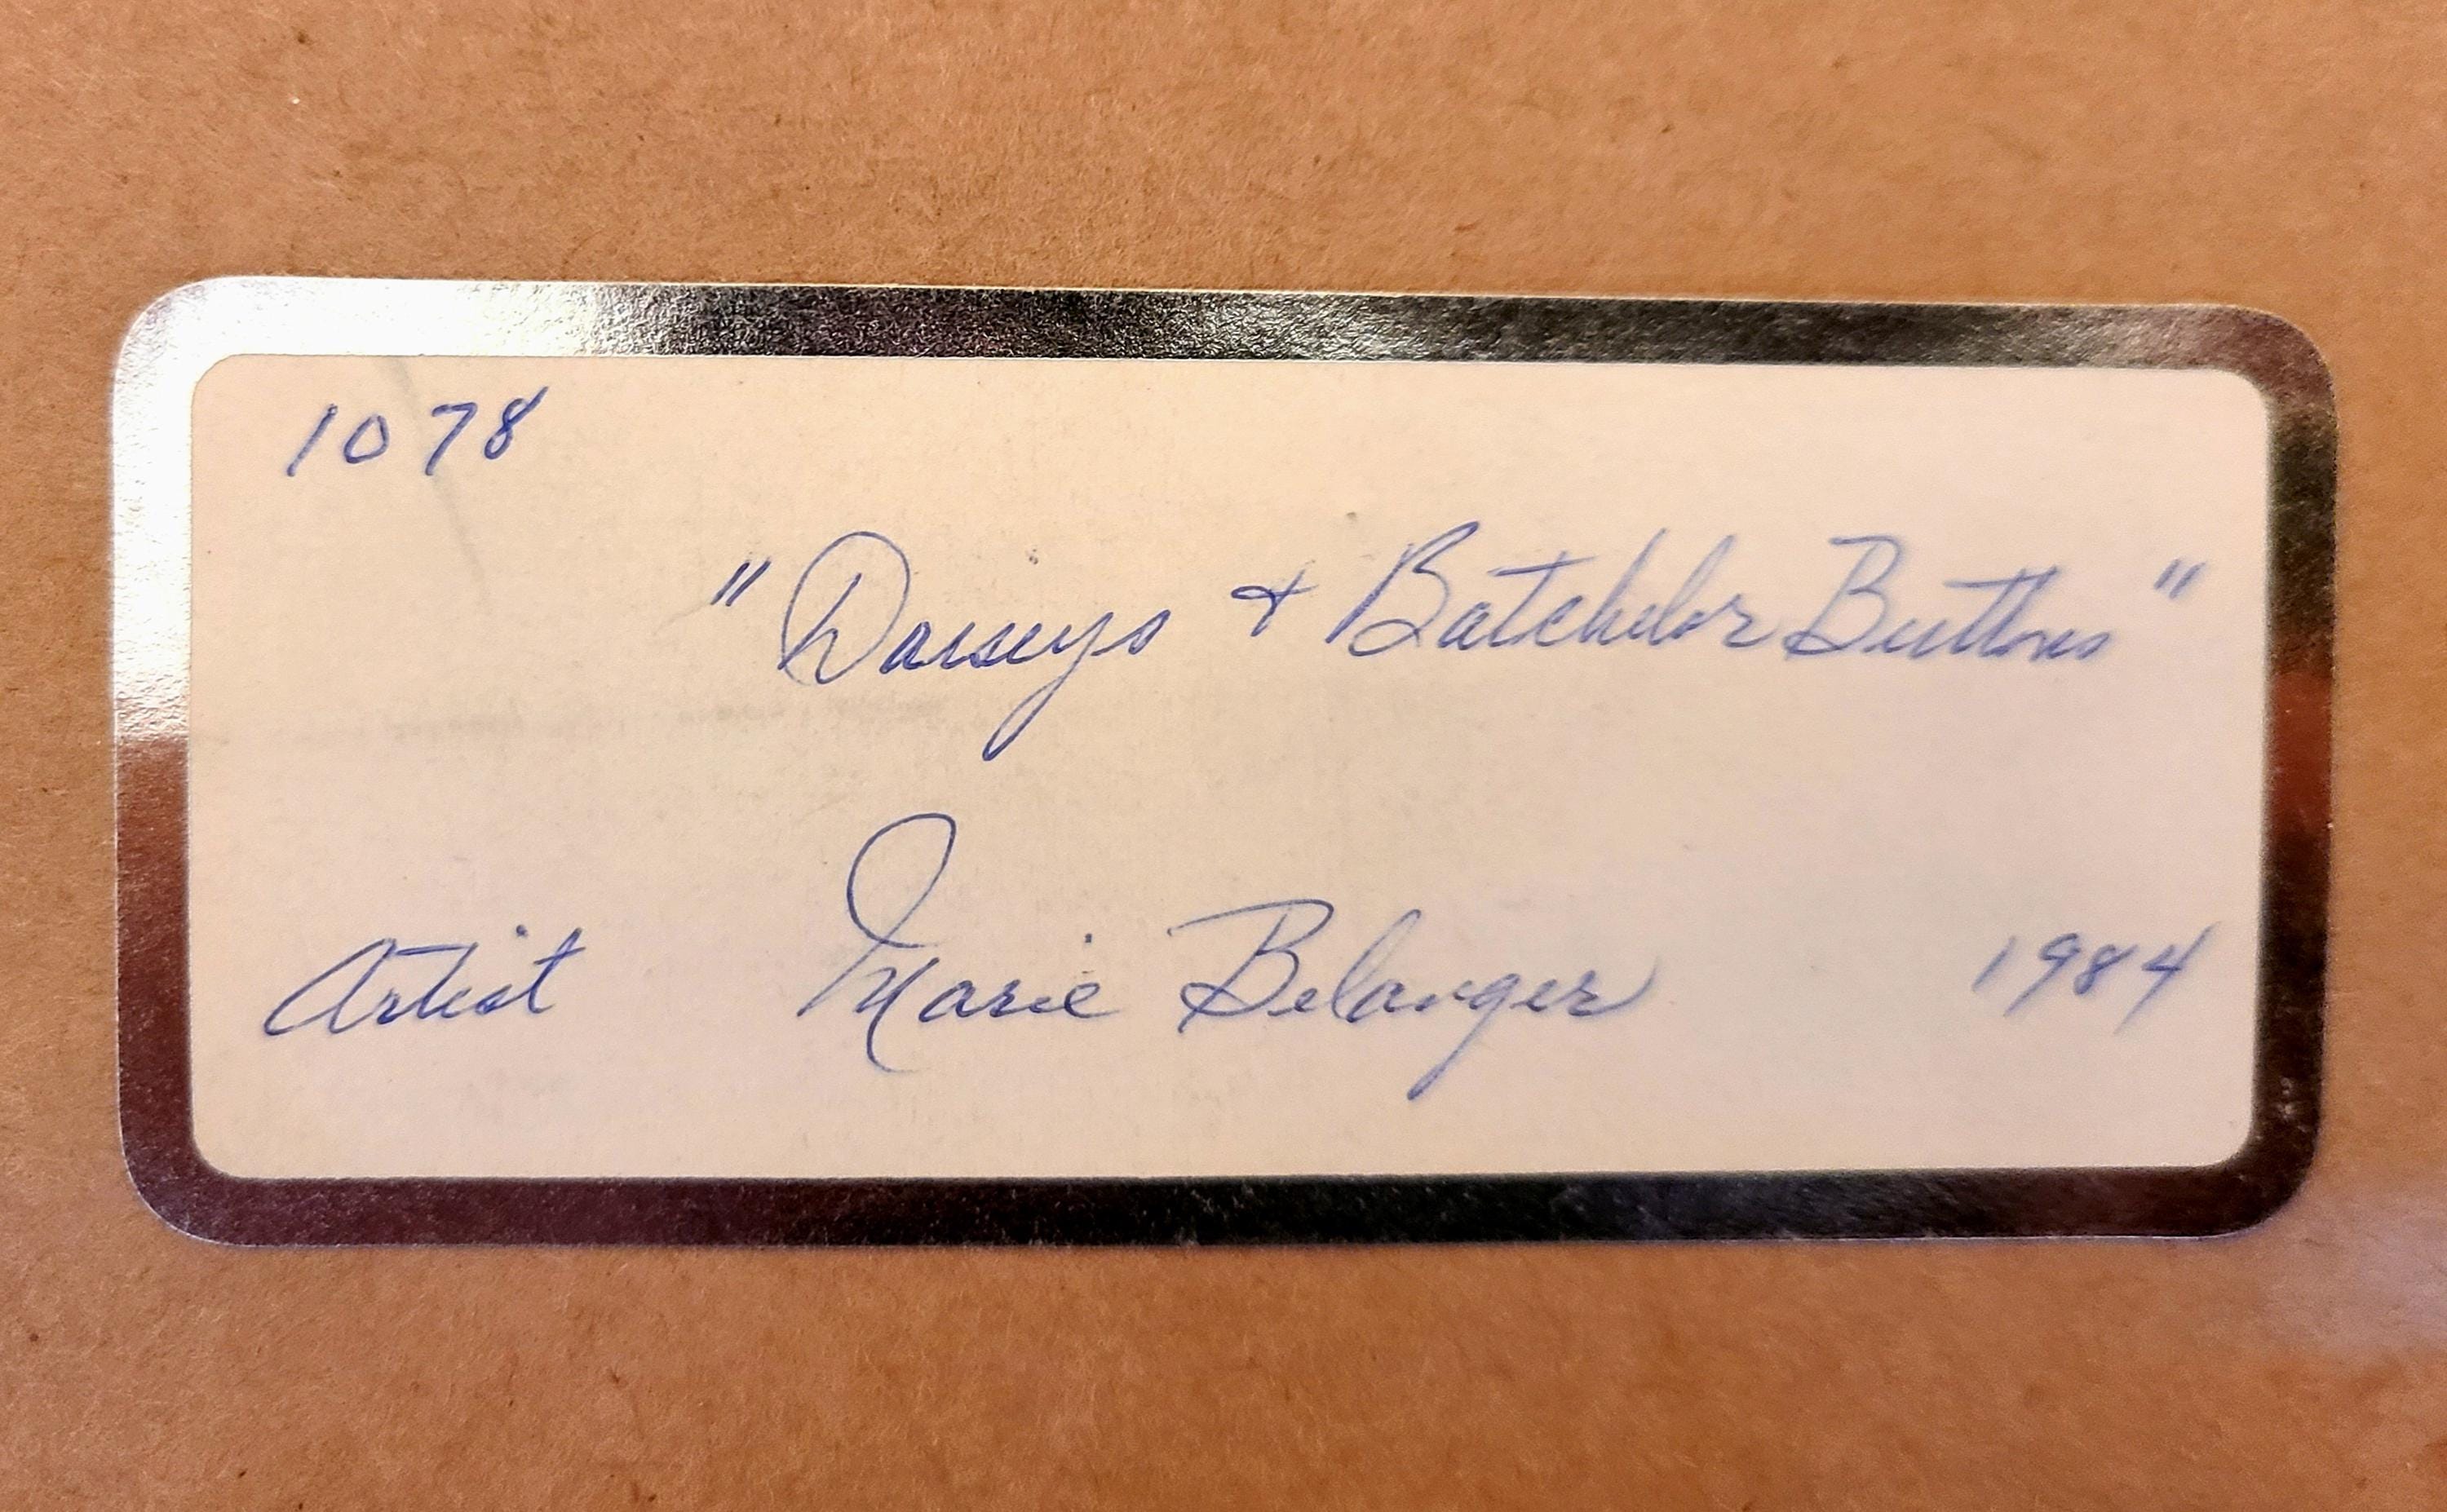 1078
"Daiseys + Batchelor Buttons"
Artist Marie Belanger 1984